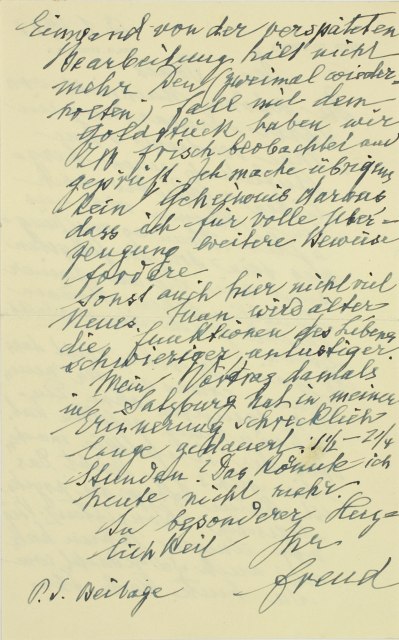 Einwand von der verspäteten
Bearbeitung hält nicht
mehr. Den (zweimal wieder-
holten) Fall mit dem
Goldstück haben wir
frisch beobachtet und
geprüft. Ich mache übrigens
kein Geheimnis daraus
dass ich für volle Über-
zeugung weitere Beweise
fordere
Sonst auch hier nicht viel
Neues. Man wird älter
die Funktionen des Lebens
schwieriger, unlustiger.
Mein Vortrag damals
in Salzburg hat in meiner
Erinnerung schrecklich
lange gedauert. 1½ – 2¼
Stunden? Das könnte ich
heute nicht mehr.
In besonderer Herz-
lichkeit Ihr
Freud
P.S. Beilage